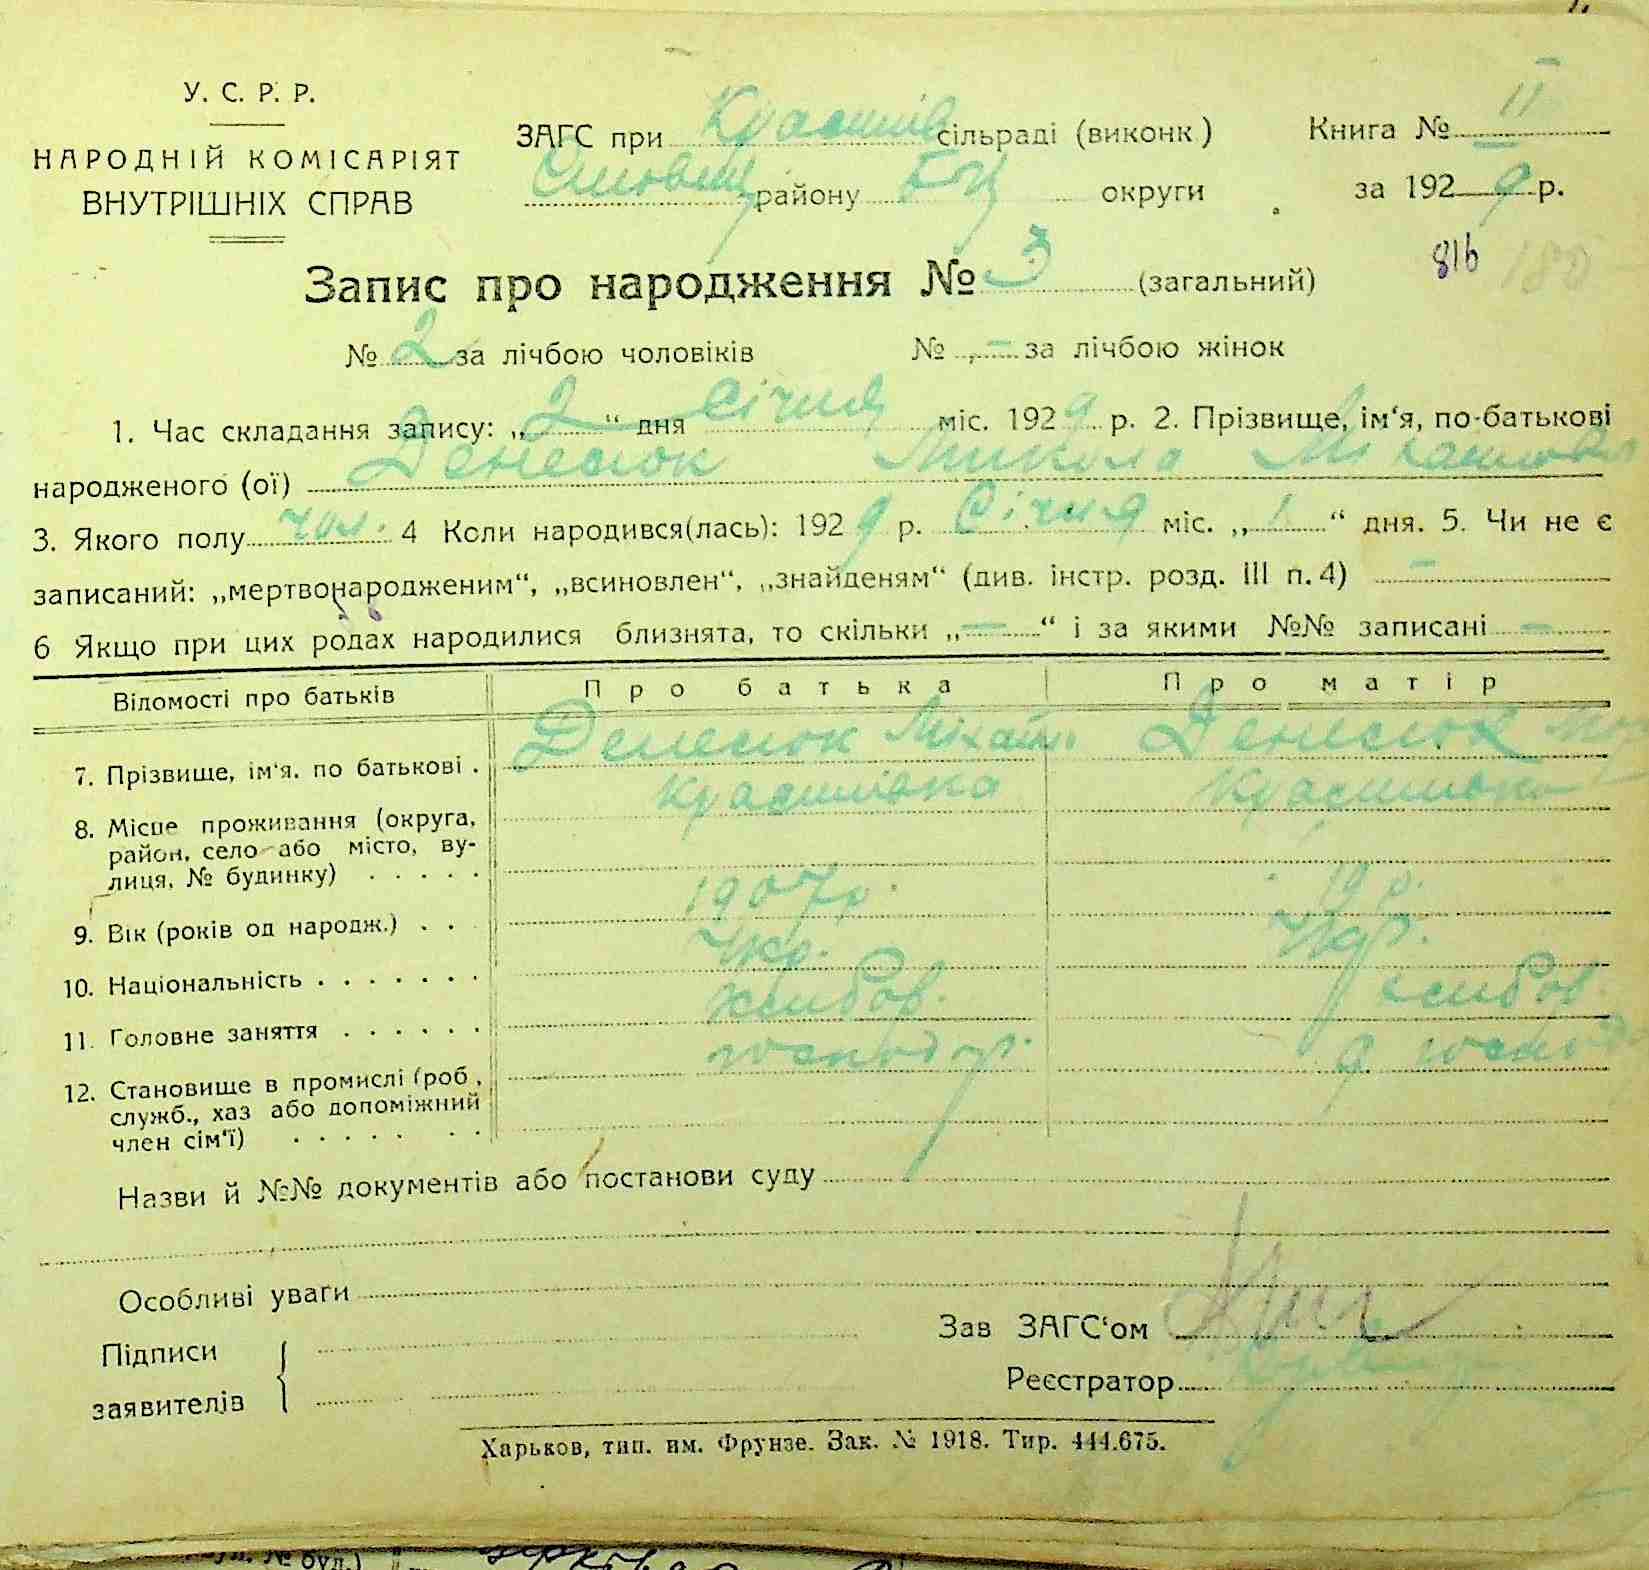 У. С. Р. Р.
НАРОДНІЙ КОМІСАРІЯТ
ВНУТРІШНІХ СПРАВ
ЗАГС при Красилів сільраді (виконк)
району округи
Книга № II
за 1929 р.
Запис про народження № 3 (загальний)
81б 180
№ 2 за лічбою чоловіків № - за лічбою жінок
1. Час складання запису: „2“ дня Січня міс. 1929 р. 2. Прізвище, ім'я, по-батькові
народженого (ої) Денесюк Микола
3. Якого полу чол. 4 Коли народився(лась): 1929 р. Січня міс. „1“ дня. 5. Чи не є
записаний: „мертвонародженим“, „всиновлен“, „знайденям“ (див. інстр. розд. III п. 4) -
6 Якщо при цих родах народилися близнята, то скільки „-“ і за якими №№ записані -
Відомості про батьків Про батька Про матір
7. Прізвище, ім'я, по батькові . Денесюк Міхайл Денесюк
8. Місце проживання (округа, Красилівка Красилівка
район, село або місто, ву-
лиця, № будинку) . . . . .
9. Вік (років од народж.) . . 1907р. 19 р.
10. Національність . . . . . . . Укр. Укр.
11. Головне заняття . . . . . . хлибор. хлибор.
12. Становище в промислі (роб., господар.
служб., хаз або допоміжний
член сім'ї) . . . . . . .
Назви й №№ документів або постанови суду
Особливі уваги
Підписи
заявителів
Зав ЗАГС'ом
Реєстратор
Харьков, тип. им. Фрунзе. Зак. № 1918. Тир. 444.675.